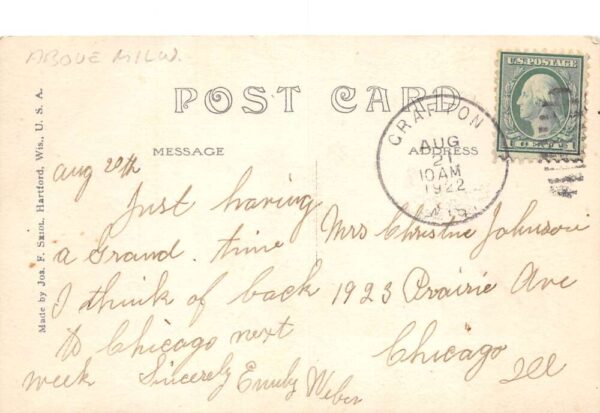 ABOVE MILW.
POST CARD
U.S. POSTAGE
MESSAGE
ADDRESS
GRAFTON
AUG
21
10 AM
1922
WIS.
Made by Jos. F. Sziol, Hartford, Wis., U. S. A.
Aug 20th
Just having
a Grand. time
I think of back
to Chicago next
week Sincerely Emily Weber
Mrs Christine Johnson
1923 Prairie Ave
Chicago
Ill